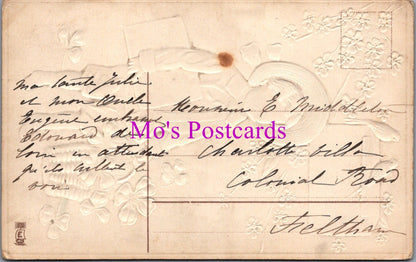 ma tante Julie
et mon Oncle
Eugène embrasse
Edouard de
loin en attendant
qu'ils aillent le
voir
Monsieur E Middleton
Charlotte Villa
Colonial Road
Feltham
Mo's Postcards